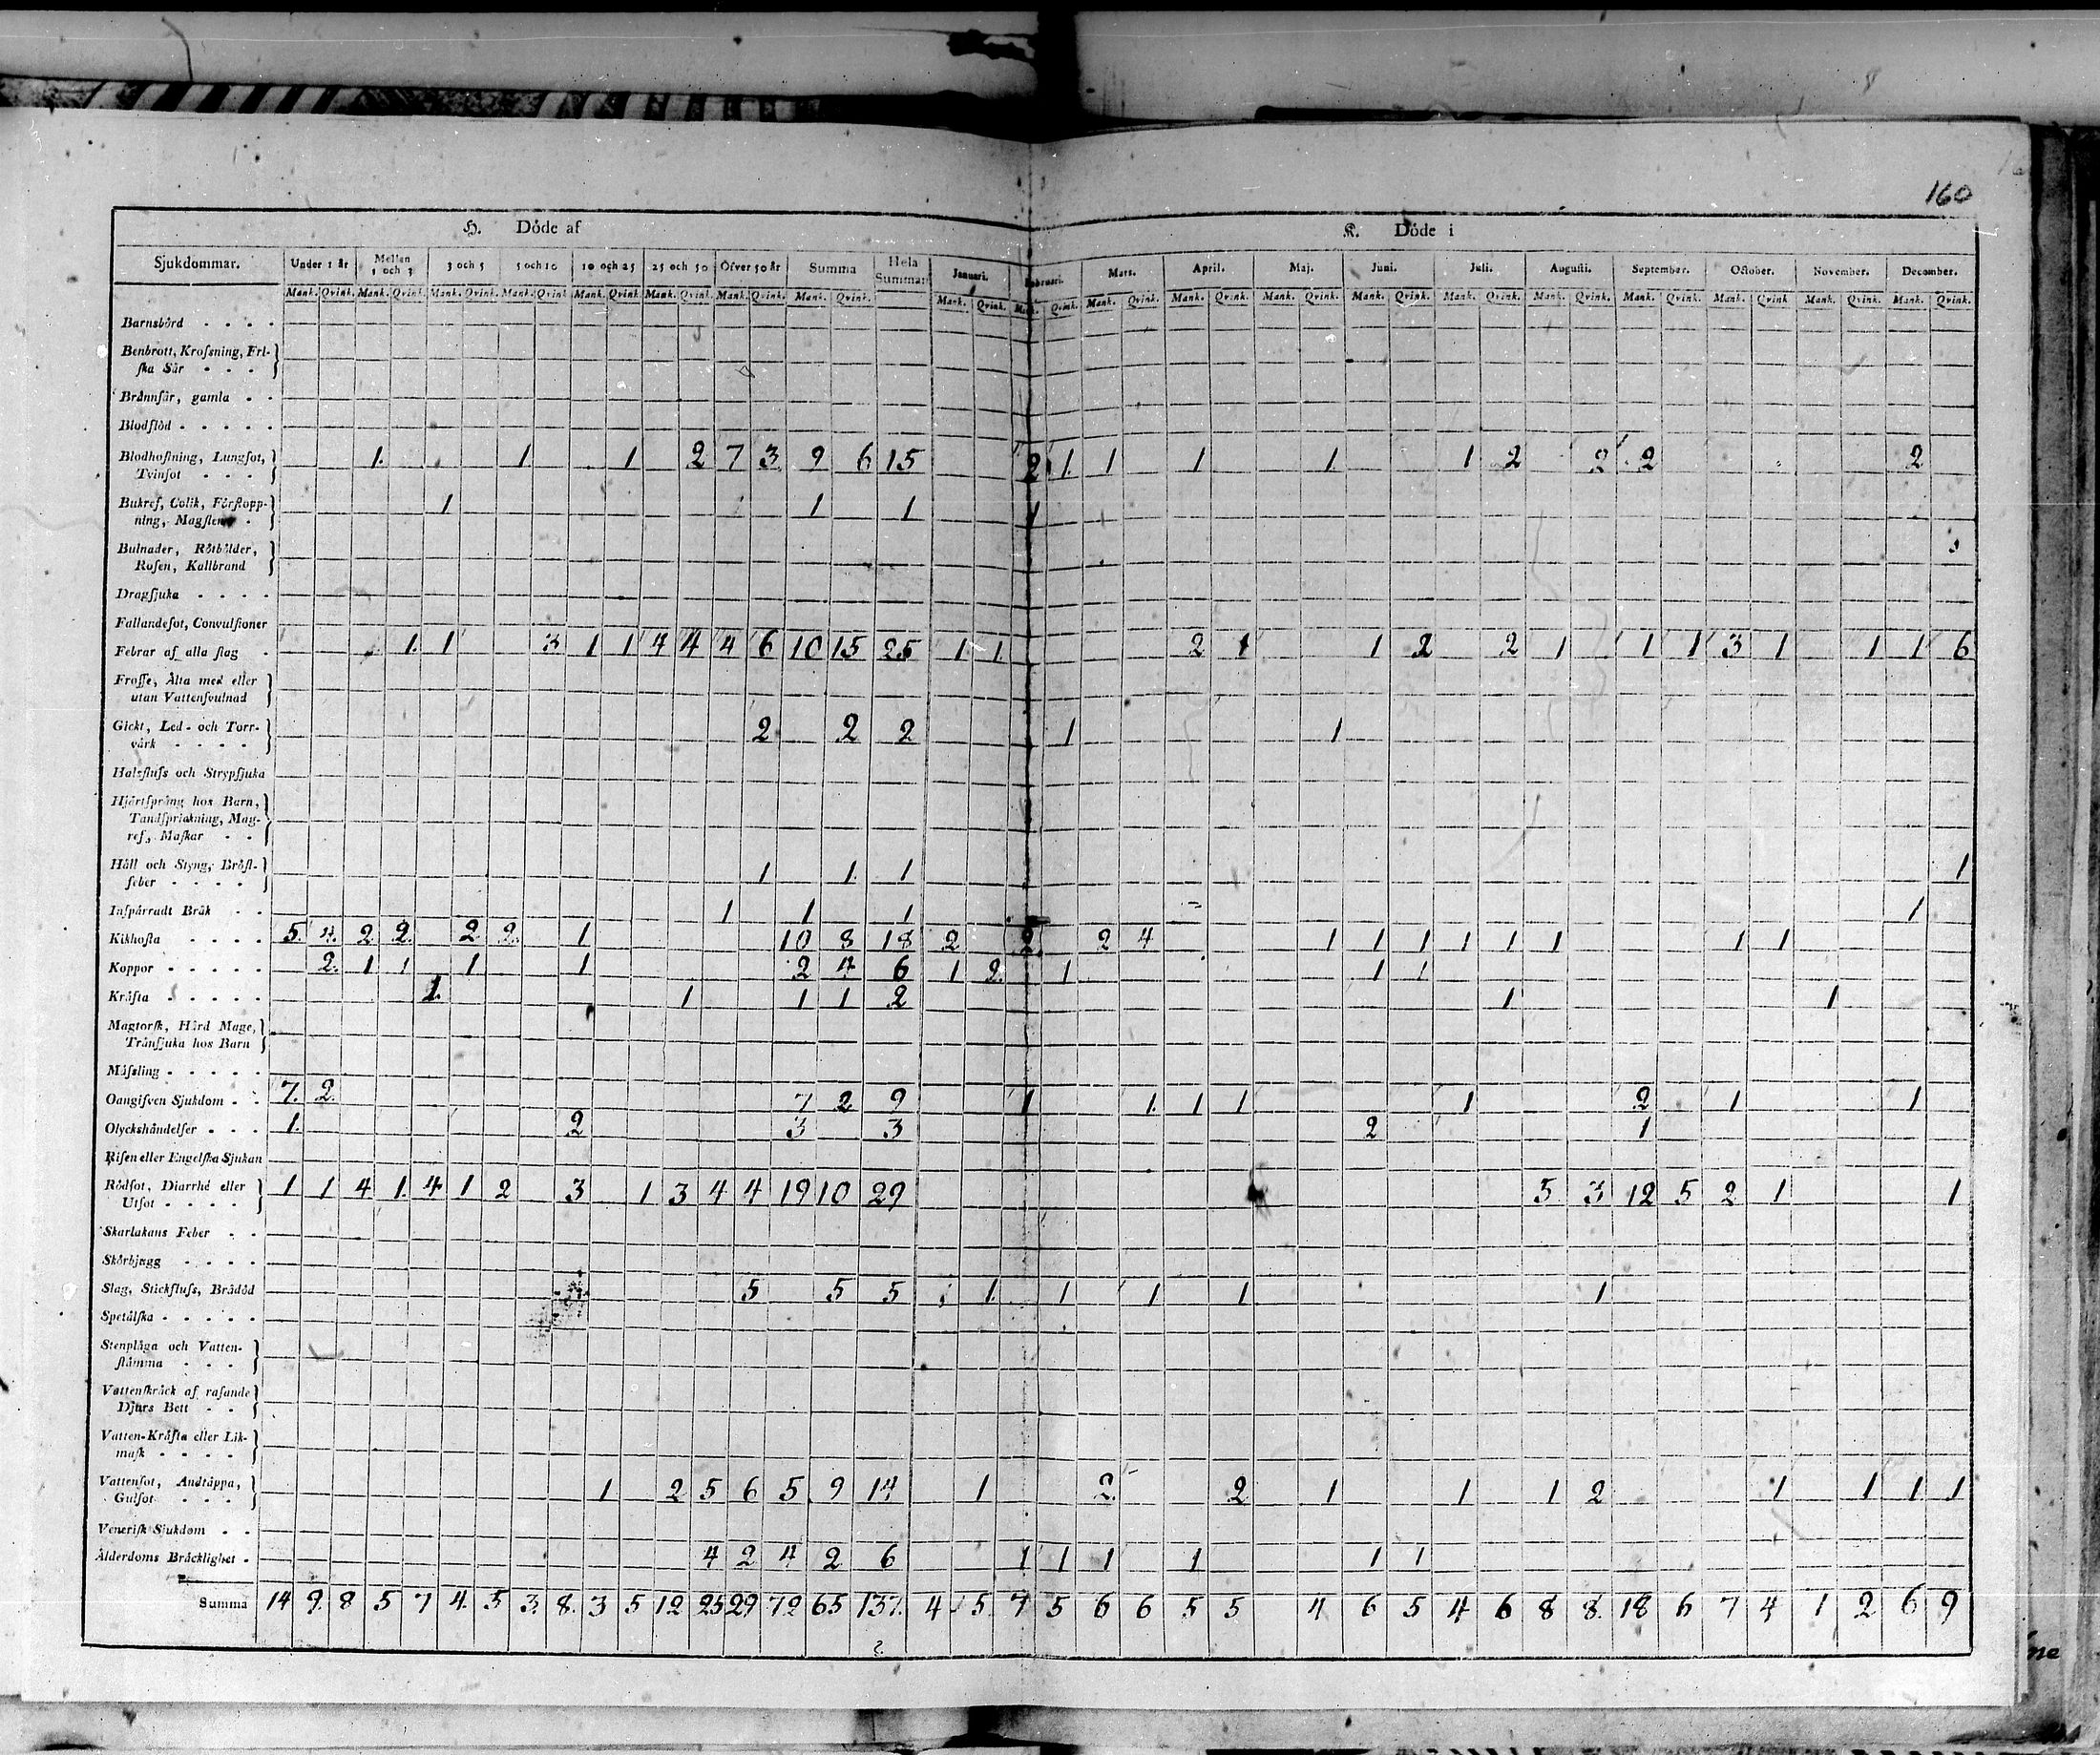 160
H. Döde af K. Döde i
Sjukdommar. Under 1 år Mellan 1 och 3 3 och 5 5 och 10 10 och 25 25 och 50 Öfver 50 år Summa Hela Summan Januari. Februari. Mars. April. Maj. Juni. Juli. Augusti. September. October. November. December.
Mank. Qvink. Mank. Qvink. Mank. Qvink. Mank. Qvink. Mank. Qvink. Mank. Qvink. Mank. Qvink. Mank. Qvink. Mank. Qvink. Mank. Qvink. Mank. Qvink. Mank. Qvink. Mank. Qvink. Mank. Qvink. Mank. Qvink. Mank. Qvink. Mank. Qvink. Mank. Qvink. Mank. Qvink. Mank. Qvink.
Barnsbörd
Benbrott, Krofsning, Fri-
ſka Sår
Brännſår, gamla
Blodflöd
Blodhoſtning, Lungſot, 1. 1 1 2 7 3 9 6 15 2 1. 1 1 1. 1 2 2 2 2
Tvinſot
Bukref, Colik, Förſtopp- 1 1 1 1
ning, Magſlem
Bulnader, Rötbölder,
Roſen, Kallbrand
Dragſjuka
Fallandeſot, Convulſioner
Febrar af alla ſlag 1. 1 3 1 1 4 4 4 6 10 15 25 1 1 2 1 1 2 2 1 1 1 3 1 1 1 6
Froſſe, Älta med eller
utan Vattenſvulnad
Gickt, Led- och Torr- 2 2 2 1 1
värk
Halsfluſs och Strypſjuka
Hjärtſprång hos Barn,
Tandſprickning, Mag-
ref, Maſkar
Håll och Styng, Bröſt- 1 1. 1 1
feber
Inſpärradt Bråk 1 1 1 1
Kikhoſta 5. 4. 2 2. 2 2. 1 10 8 18 2 2. 2 4 1 1 1 1 1 1 1 1
Koppor 2. 1 1 1 1 2 4 6 1 2. 1 1 1
Kräfta 1. 1 1 1 2 1 1
Magtorſk, Hård Mage,
Tränſjuka hos Barn
Mäſsling
Oangifven Sjukdom 7. 2. 7 2 9 1 1. 1 1 1 2 1 1
Olyckshändelſer 1. 2 3 3 2 1
Riſen eller Engelſka Sjukan
Rödſot, Diarrhé eller 1 1 4 1. 4 1 2 3 1 3 4 4 19 10 29 5 3 12 5 2 1 1
Utſot
Skarlakans Feber
Skörbjugg
Slag, Stickfluſs, Brådöd 5 5 5 1. 1 1 1 1
Spetälſka
Stenplåga och Vatten-
ſtämma
Vattenſkräck af raſande
Djurs Bett
Vatten-Kräfta eller Lik-
maſk
Vattenſot, Andtäppa, 1 2 5 6 5 9 14 1 2. 2 1 1 1 2 1 1 1 1
Gulſot
Veneriſk Sjukdom
Ålderdoms Bräcklighet 4 2 4 2 6 1 1 1 1 1 1
Summa 14 9. 8 5 7 4. 5 3. 8. 3 5 12 25 29 72 65 137. 4 5 7 5 6 6 5 5 4 6 5 4 6 8 8. 18 6 7 4 1 2 6 9